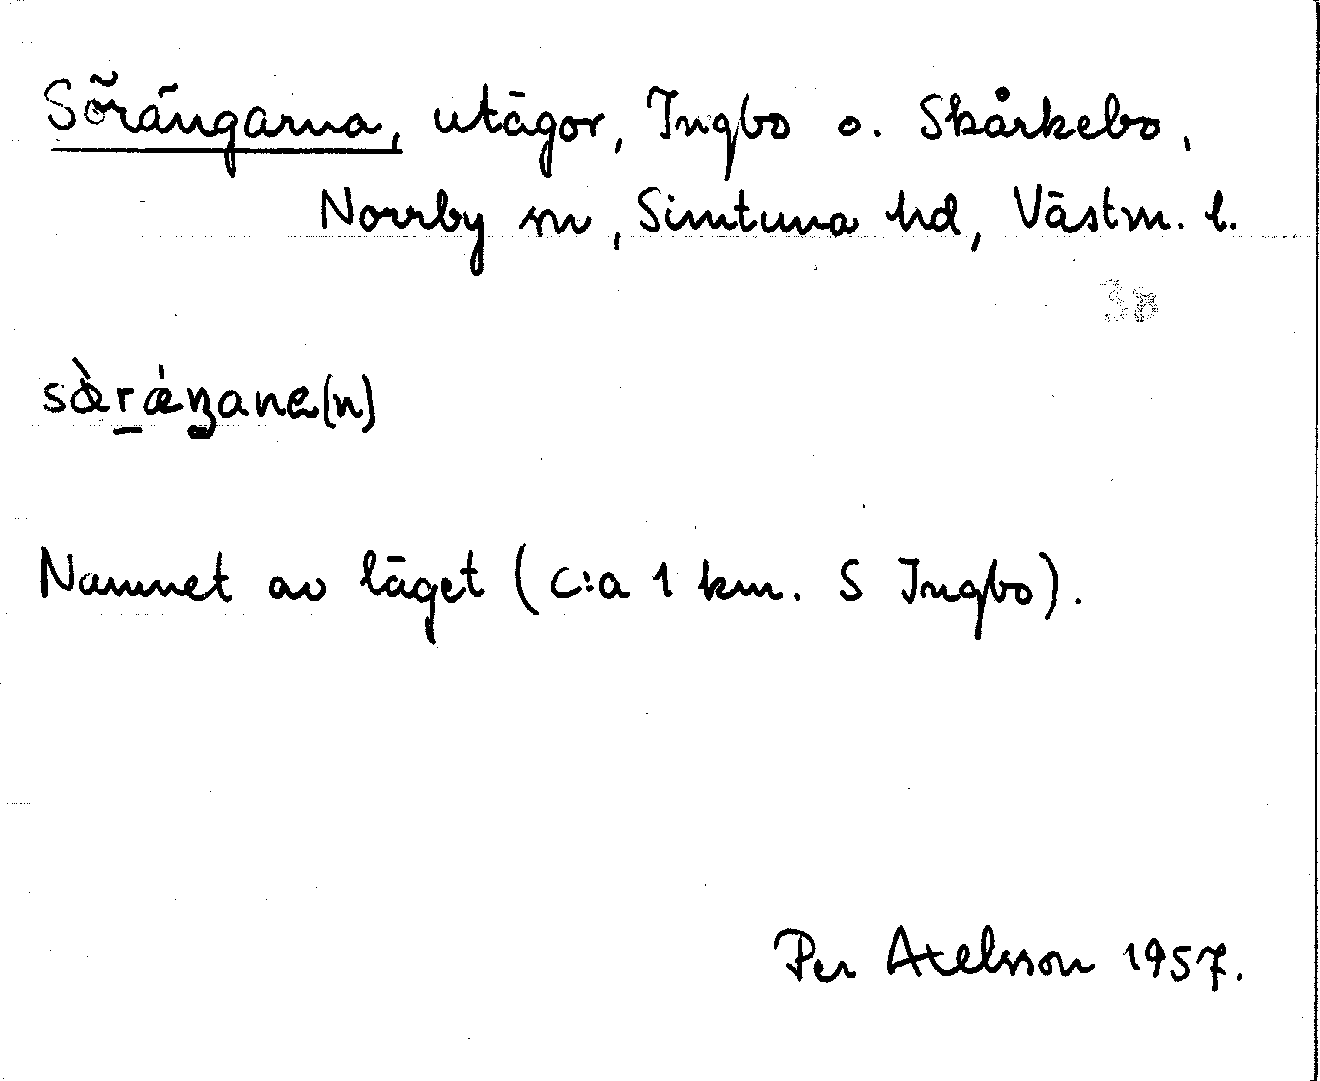 Sörängarna, utägor, Ingbo o. Skårkebo,
Norrby sn, Simtuna hd, Västm. l.
3B
Namnet av läget (c:a 1 km. S Ingbo).
Per Axelsson 1957.